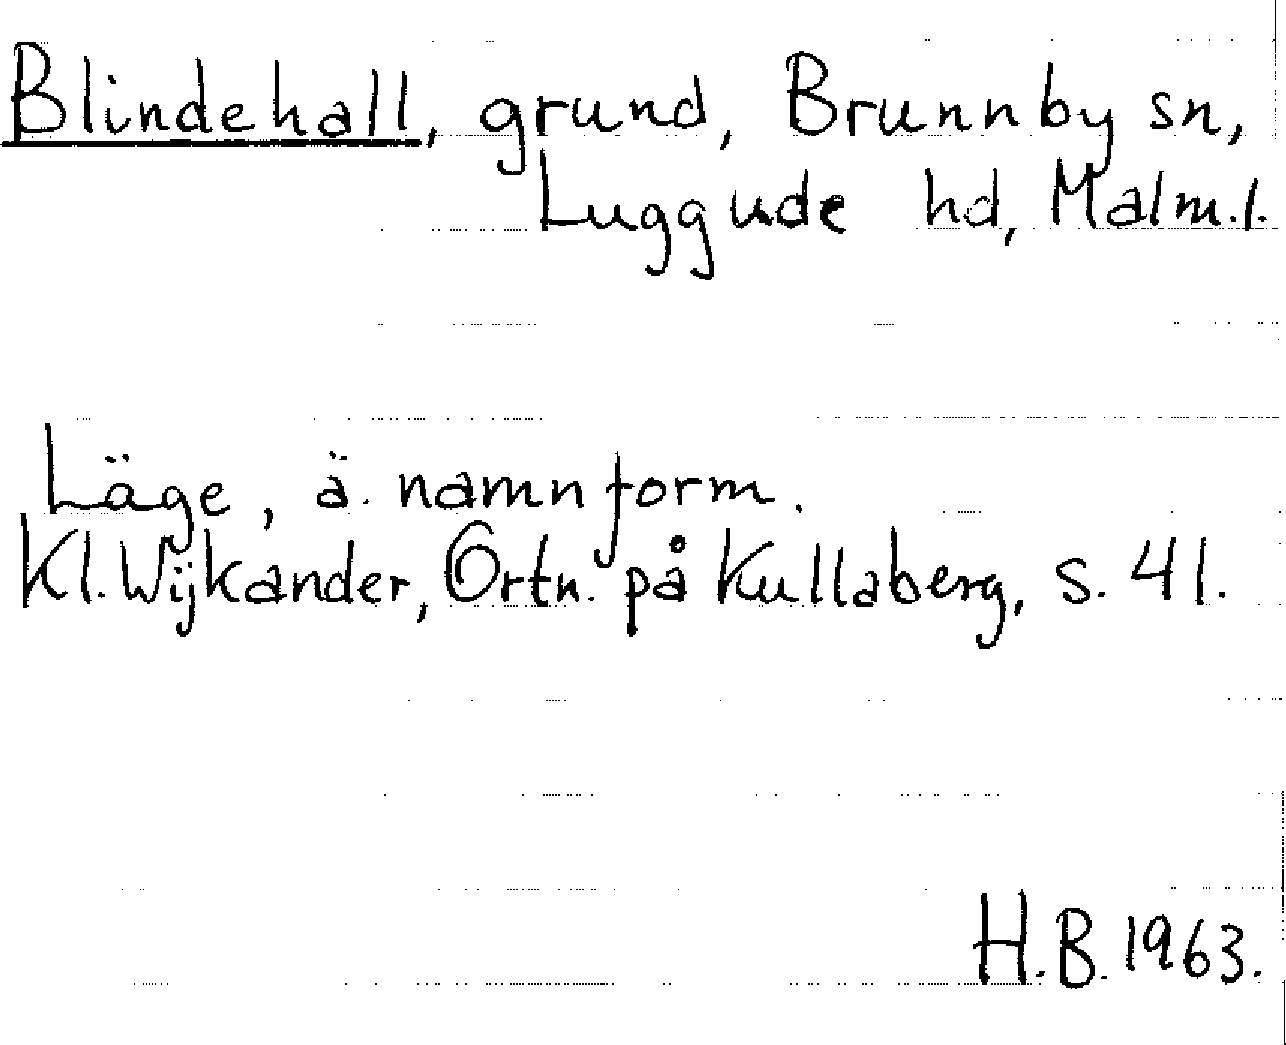 Blindehall, grund, Brunnby sn,
Luggude hd, Malm.l.
Läge, ä. namnform.
Kl. Wijkander, Ortn. på Kullaberg, s. 41.
H.B. 1963.